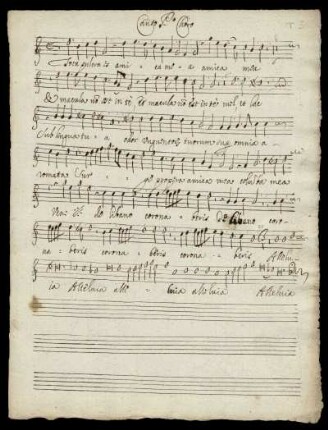 Canto P.o Choro
Tota pulcra es ami - ca me - a amica mea
& macula nõ est in te & macula nõ est in te
sub lingua tua odor unguentorũ tuorum sup omnia a -
romata Sur - propera amica mea columba mea
Veni de libano corona - beris de libano coro -
na - beris corona - beris corona - beris Allelu -
ia Alleluia alle - luia alleluia Alleluia